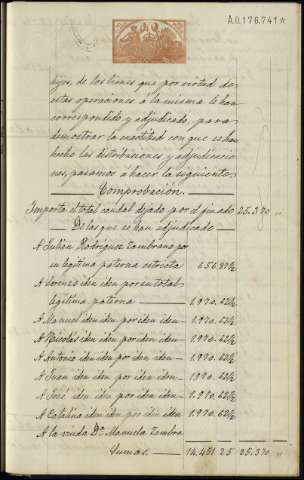 A.0.176.741*
hijos, de los bienes que por virtud de
estas operaciones á la misma le han
correspondido y adjudicado, para
demostrar la exactitud con que se han
hecho las distribuciones y adjudicacio-
nes, pasamos á hacer la siguiente
Comprobacion.
Importa el total caudal dejado por el finado 25.370 "
De los que se han adjudicado
A Julian Rodriguez Zambrano por
su legitima paterna estricta 656.87½
A Lorenzo iden iden por su total
legítima paterna 1.970.62½
A Manuel iden iden por iden iden 1.970.62½
A Nicolás iden iden por iden iden 1.970.62½
A Antonio iden iden por iden iden 1.970.62½
A Juan iden iden por iden iden 1.970.62½
A José iden iden por iden iden 1.970.62½
A Catalina iden iden por iden iden 1.970.62½
A la viuda Dª Manuela Zambra
Sumas 14.451 25 25.370 "